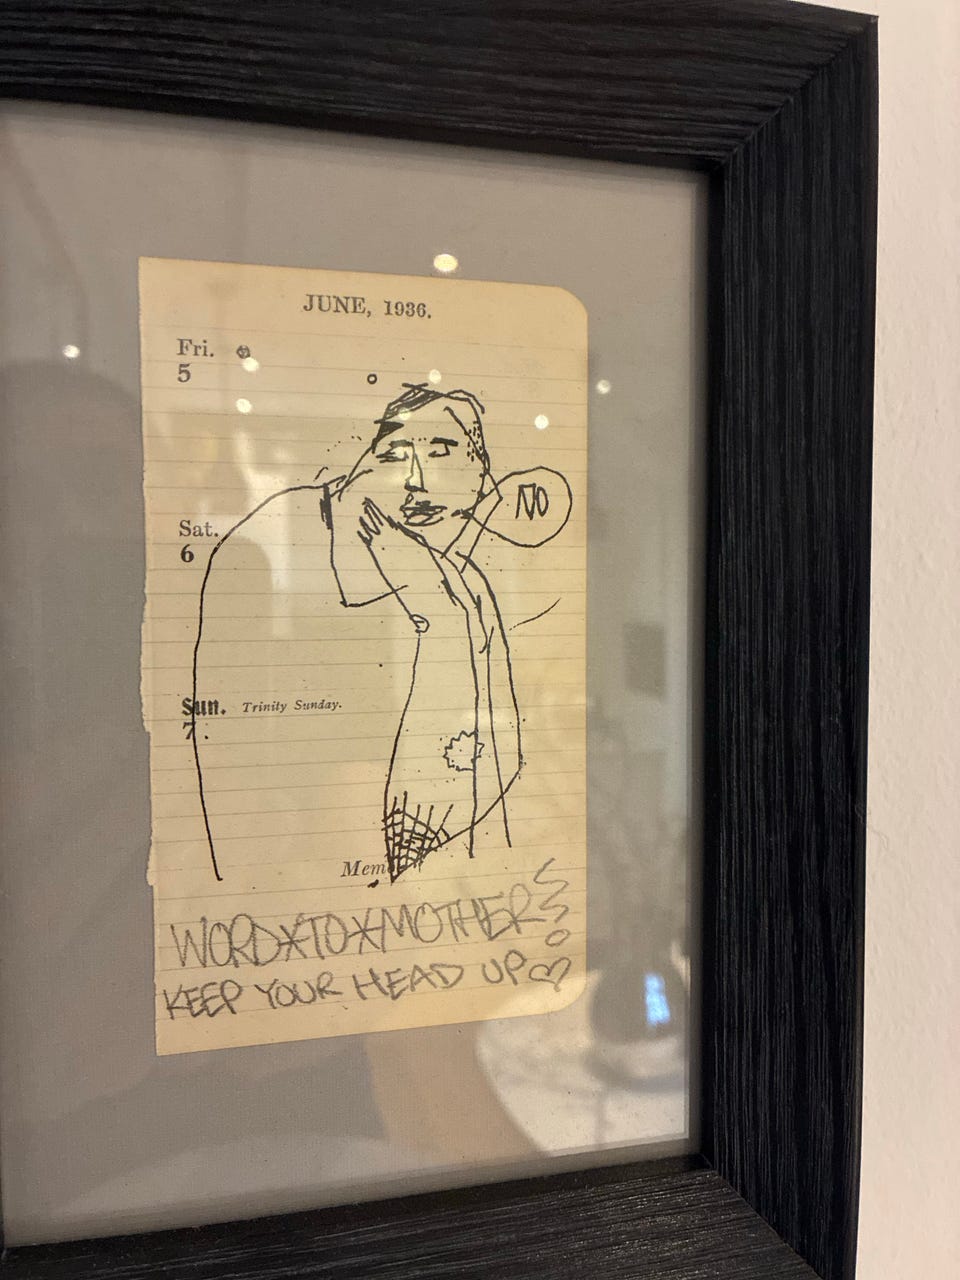 JUNE, 1936.
Fri.
5
NO
Sat.
6
Sun. Trinity Sunday.
7.
Mem
WORD*TO*MOTHER
KEEP YOUR HEAD UP♡